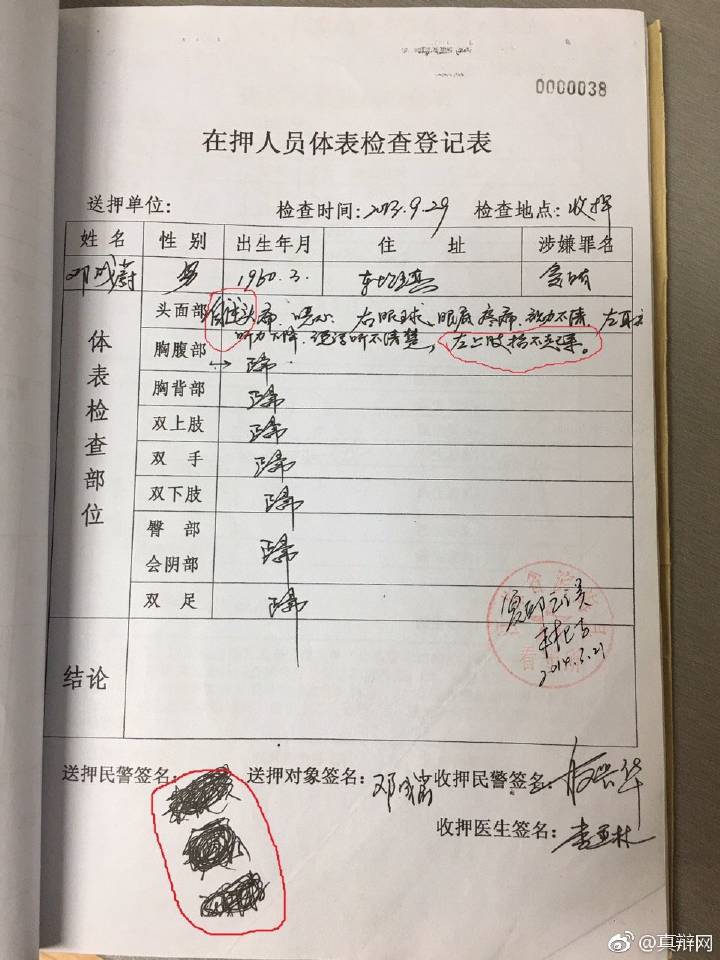 0000038
在押人员体表检查登记表
送押单位： 检查时间：2013.9.29 检查地点：收押
姓名 性别 出生年月 住址 涉嫌罪名
邓成 男 1960.3.
体表检查部位
头面部 自述头痛 右眼球、眼底疼痛、视力不清、左耳
听力下降、说话听不清楚，左上肢指不灵.
胸腹部 正常
胸背部 正常
双上肢 正常
双手 正常
双下肢 正常
臀部
会阴部 正常
双足 正常
复印
看
结论
送押民警签名： 送押对象签名：邓成 收押民警签名：
收押医生签名：李亚林
@真辩网